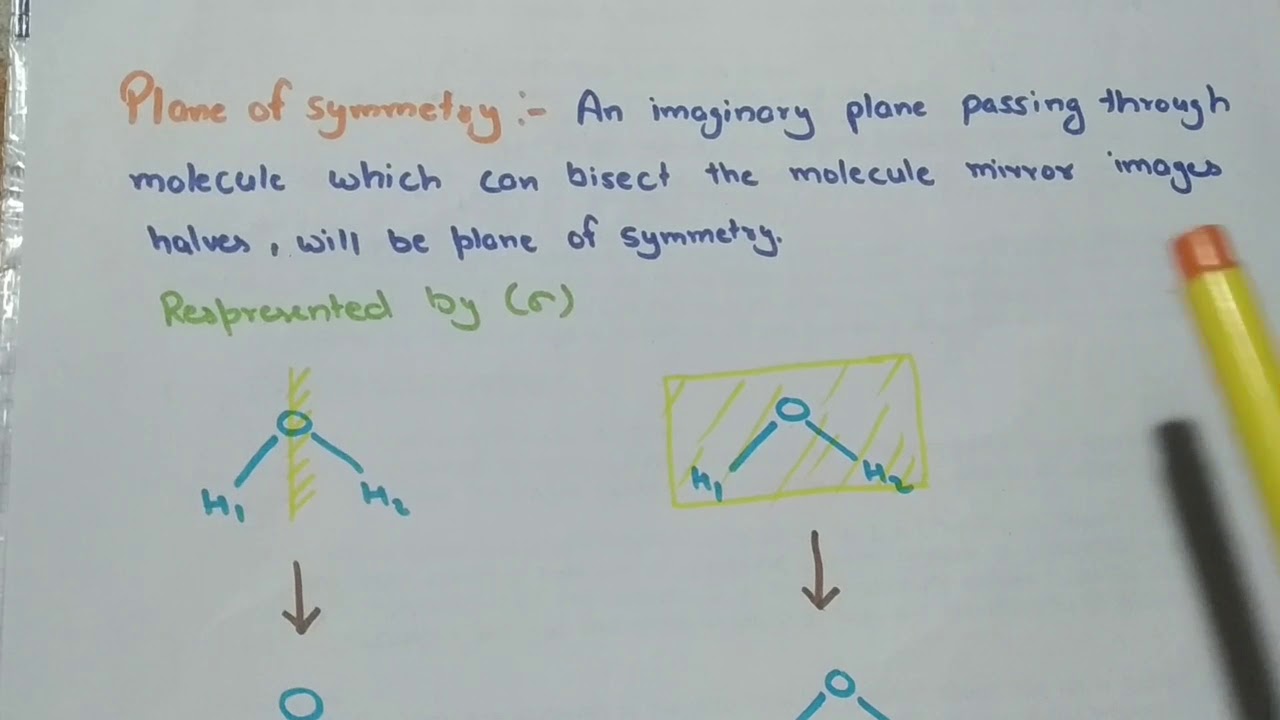 Plane of symmetry :- An imaginary plane passing through
molecule which can bisect the molecule mirror images
halves, will be plane of symmetry.
Respresented by (σ)
O O
H₁ H₂ H₁ H₂
O O